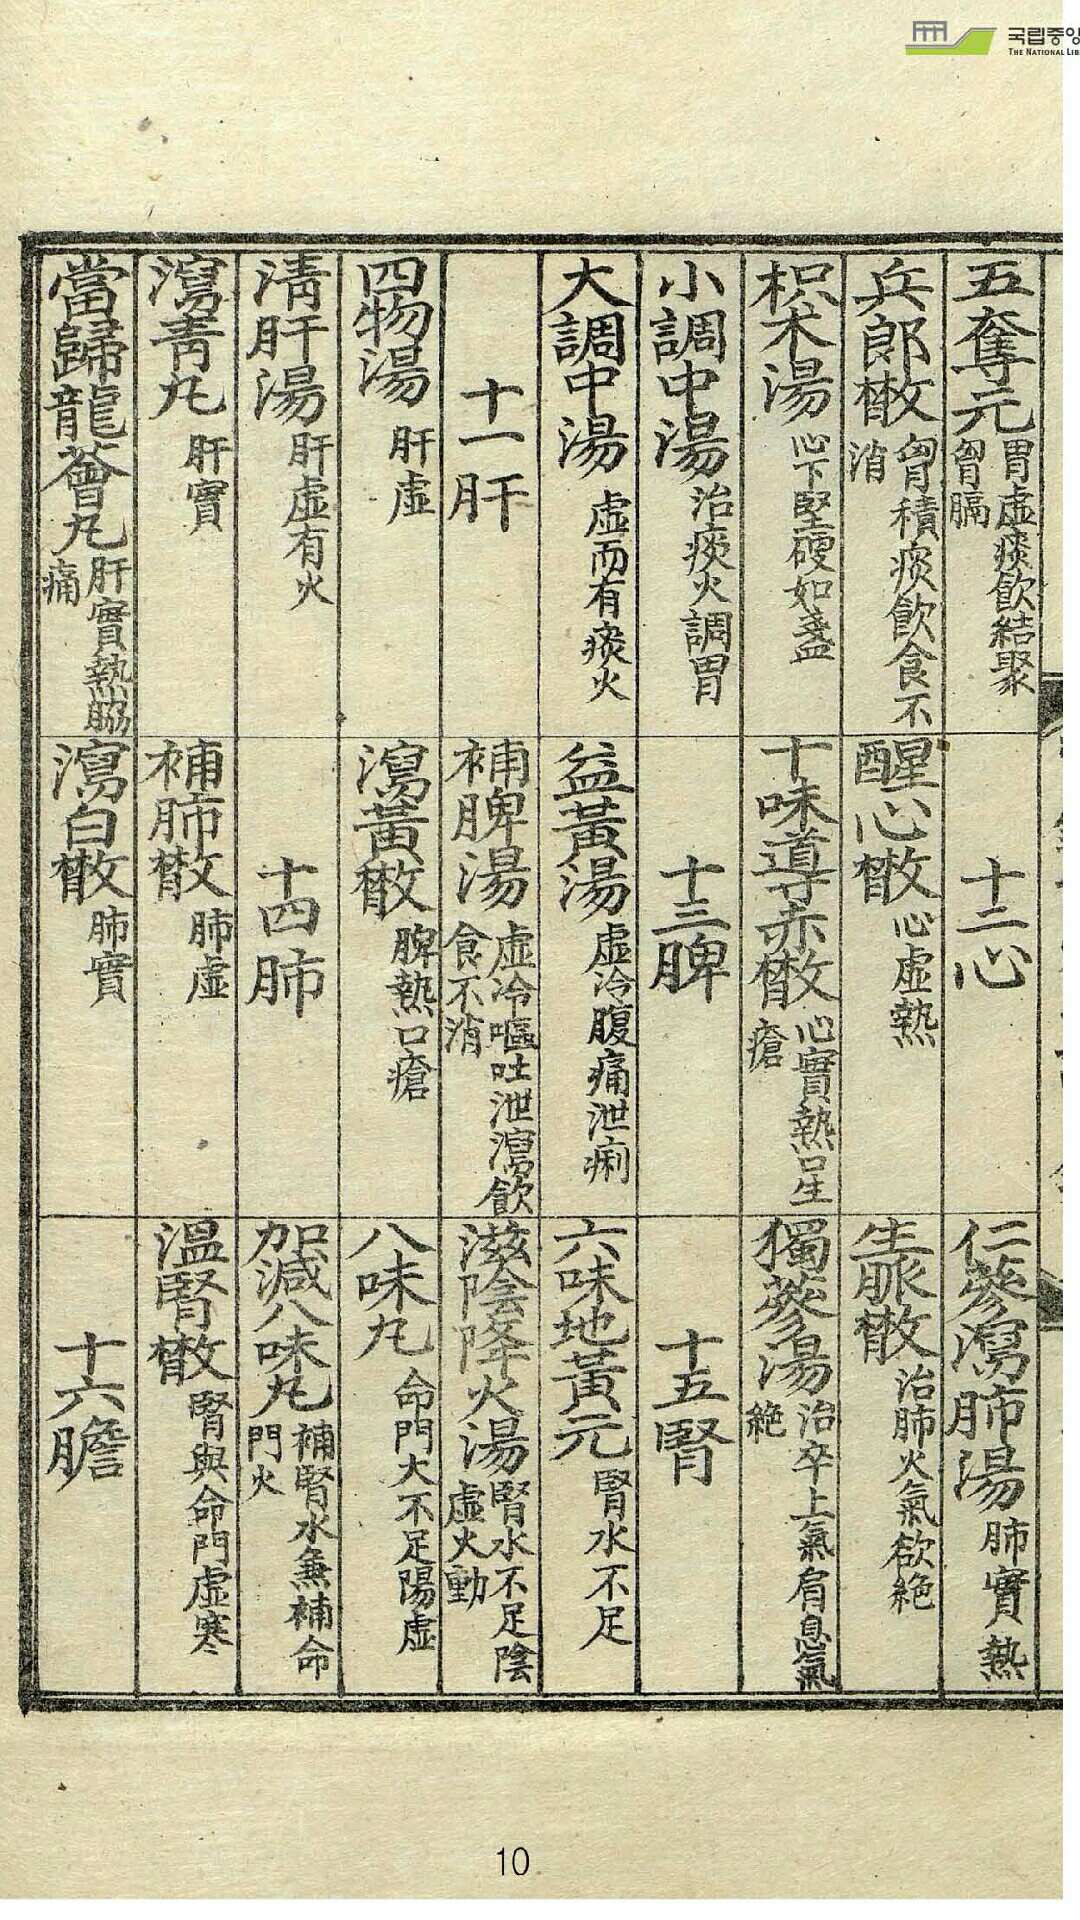 국립중앙
THE NATIONAL LIB
五奪元 胃虛痰飮結聚胷膈
兵郎散 胷積痰飮食不消
枳朮湯 心下堅硬如盞
小調中湯 治痰火調胃
大調中湯 虛而有痰火
十一肝
四物湯 肝虛
淸肝湯 肝虛有火
瀉靑丸 肝實
當歸龍薈丸 肝實熱脇痛
十二心
醒心散 心虛熱
十味導赤散 心實熱口生瘡
十三脾
益黃湯 虛冷腹痛泄痢
補脾湯 虛冷嘔吐泄瀉飮食不消
瀉黃散 脾熱口瘡
十四肺
補肺散 肺虛
瀉白散 肺實
仁蔘瀉肺湯 肺實熱
生脈散 治肺火氣欲絶
獨蔘湯 治卒上氣肩息氣絶
十五腎
六味地黃元 腎水不足
滋陰降火湯 腎水不足陰虛火動
八味丸 命門火不足陽虛
加減八味丸 補腎水無補命門火
溫腎散 腎與命門虛寒
十六膽
10